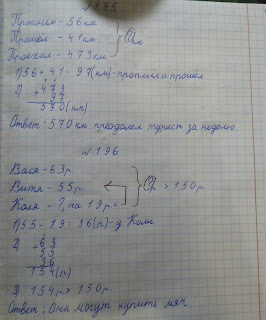 № 195
Проплыл - 56 км
Прошел - 41 км
Проехал - 473 км
? км
1) 56 + 41 = 97 (км) - проплыл и прошел
2) + 473
97
570 (км)
Ответ: 570 км преодолел турист за неделю.
№ 196
Вася - 63 р.
Витя - 55 р.
Коля - ?, на 19 р. -
? р. > 150 р.
1) 55 - 19 = 36 (р.) - у Коли
2) + 63
55
36
154 (р.)
3) 154 р. > 150 р.
Ответ: Они могут купить мяч.